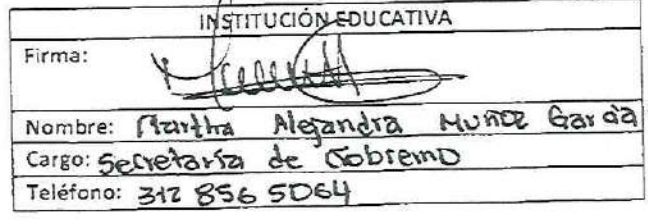 INSTITUCIÓN EDUCATIVA
Firma:
Nombre: Martha Alejandra Muñoz Garcia
Cargo: Secretaría de Gobierno
Teléfono: 312 856 5064